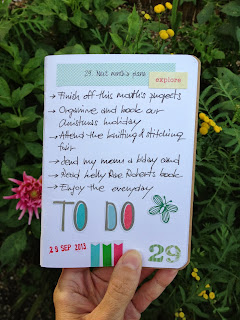 29. Next month's plans
explore
→ Finish off this month's projects
→ Organise and book our
Christmas holiday
→ Attend the knitting & stitching
fair
→ Send my mum a b'day card
→ Read Kelly Rae Roberts book
→ Enjoy the everyday
TO DO
29 SEP 2013
29